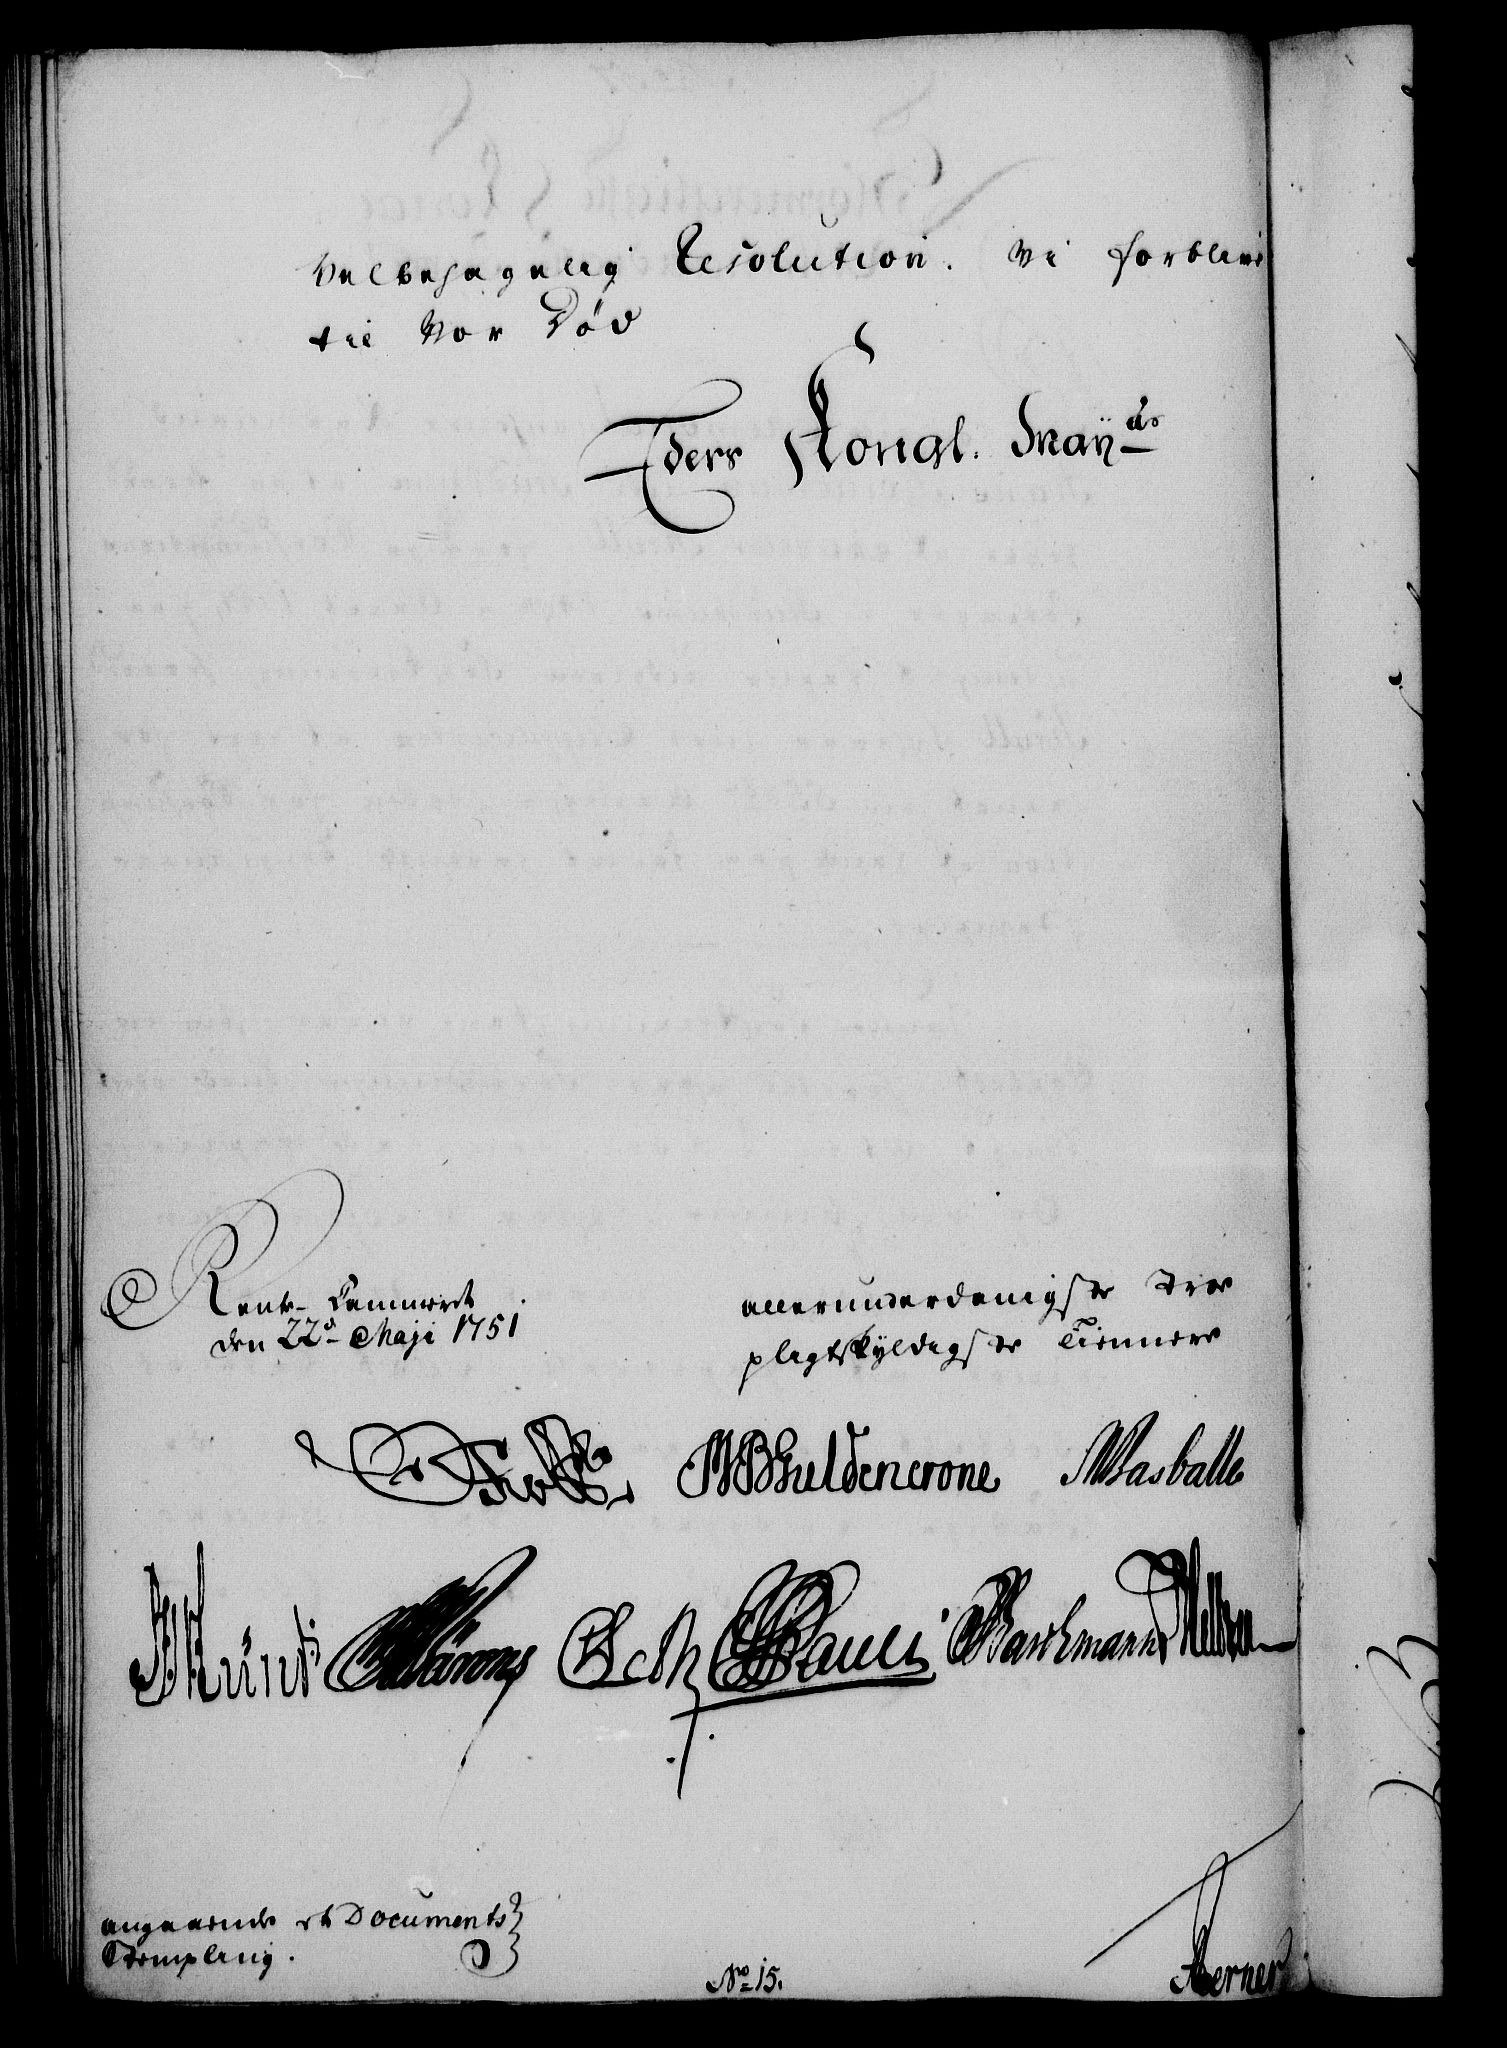 Velbehagelig Resolution. Vi forblive
til Vor Død
Eders Kongl. Mayts
Rente-Cammeret
den 22d Maji 1751
allerunderdanigste troe
pligtskyldigste Tiennere
Holst MBGuldencrone MBasballe
Künt Pauli Barchmann
angaaende et Documents
Stempling.
No 15.
Aerner